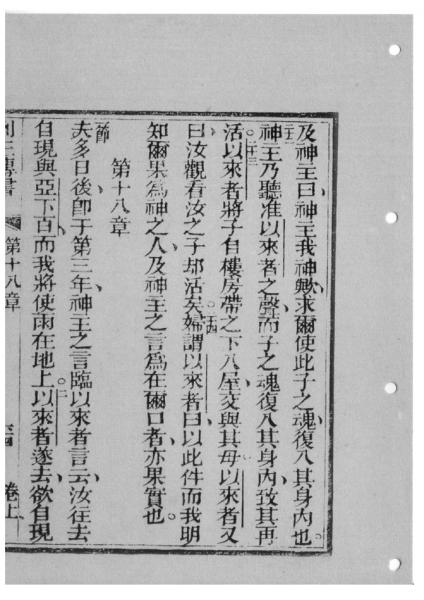 及神主曰神主我神歟求爾使此子之魂復入其身內也。
神主乃聽准以來者之聲而子之魂復入其身內致其再
活。二十三以來者將子自樓房帶之下入屋交與其母以來者又
曰汝觀看汝之子却活矣。二十四婦謂以來者曰以此件而我明
知爾果為神之人及神主之言為在爾口者亦果實也。
第十八章
節夫多日後即于第三年神主之言臨以來者言云汝往去
自現與亞下百而我將使雨在地上。二以來者遂去欲自現
王傳書 第十八章 卷上